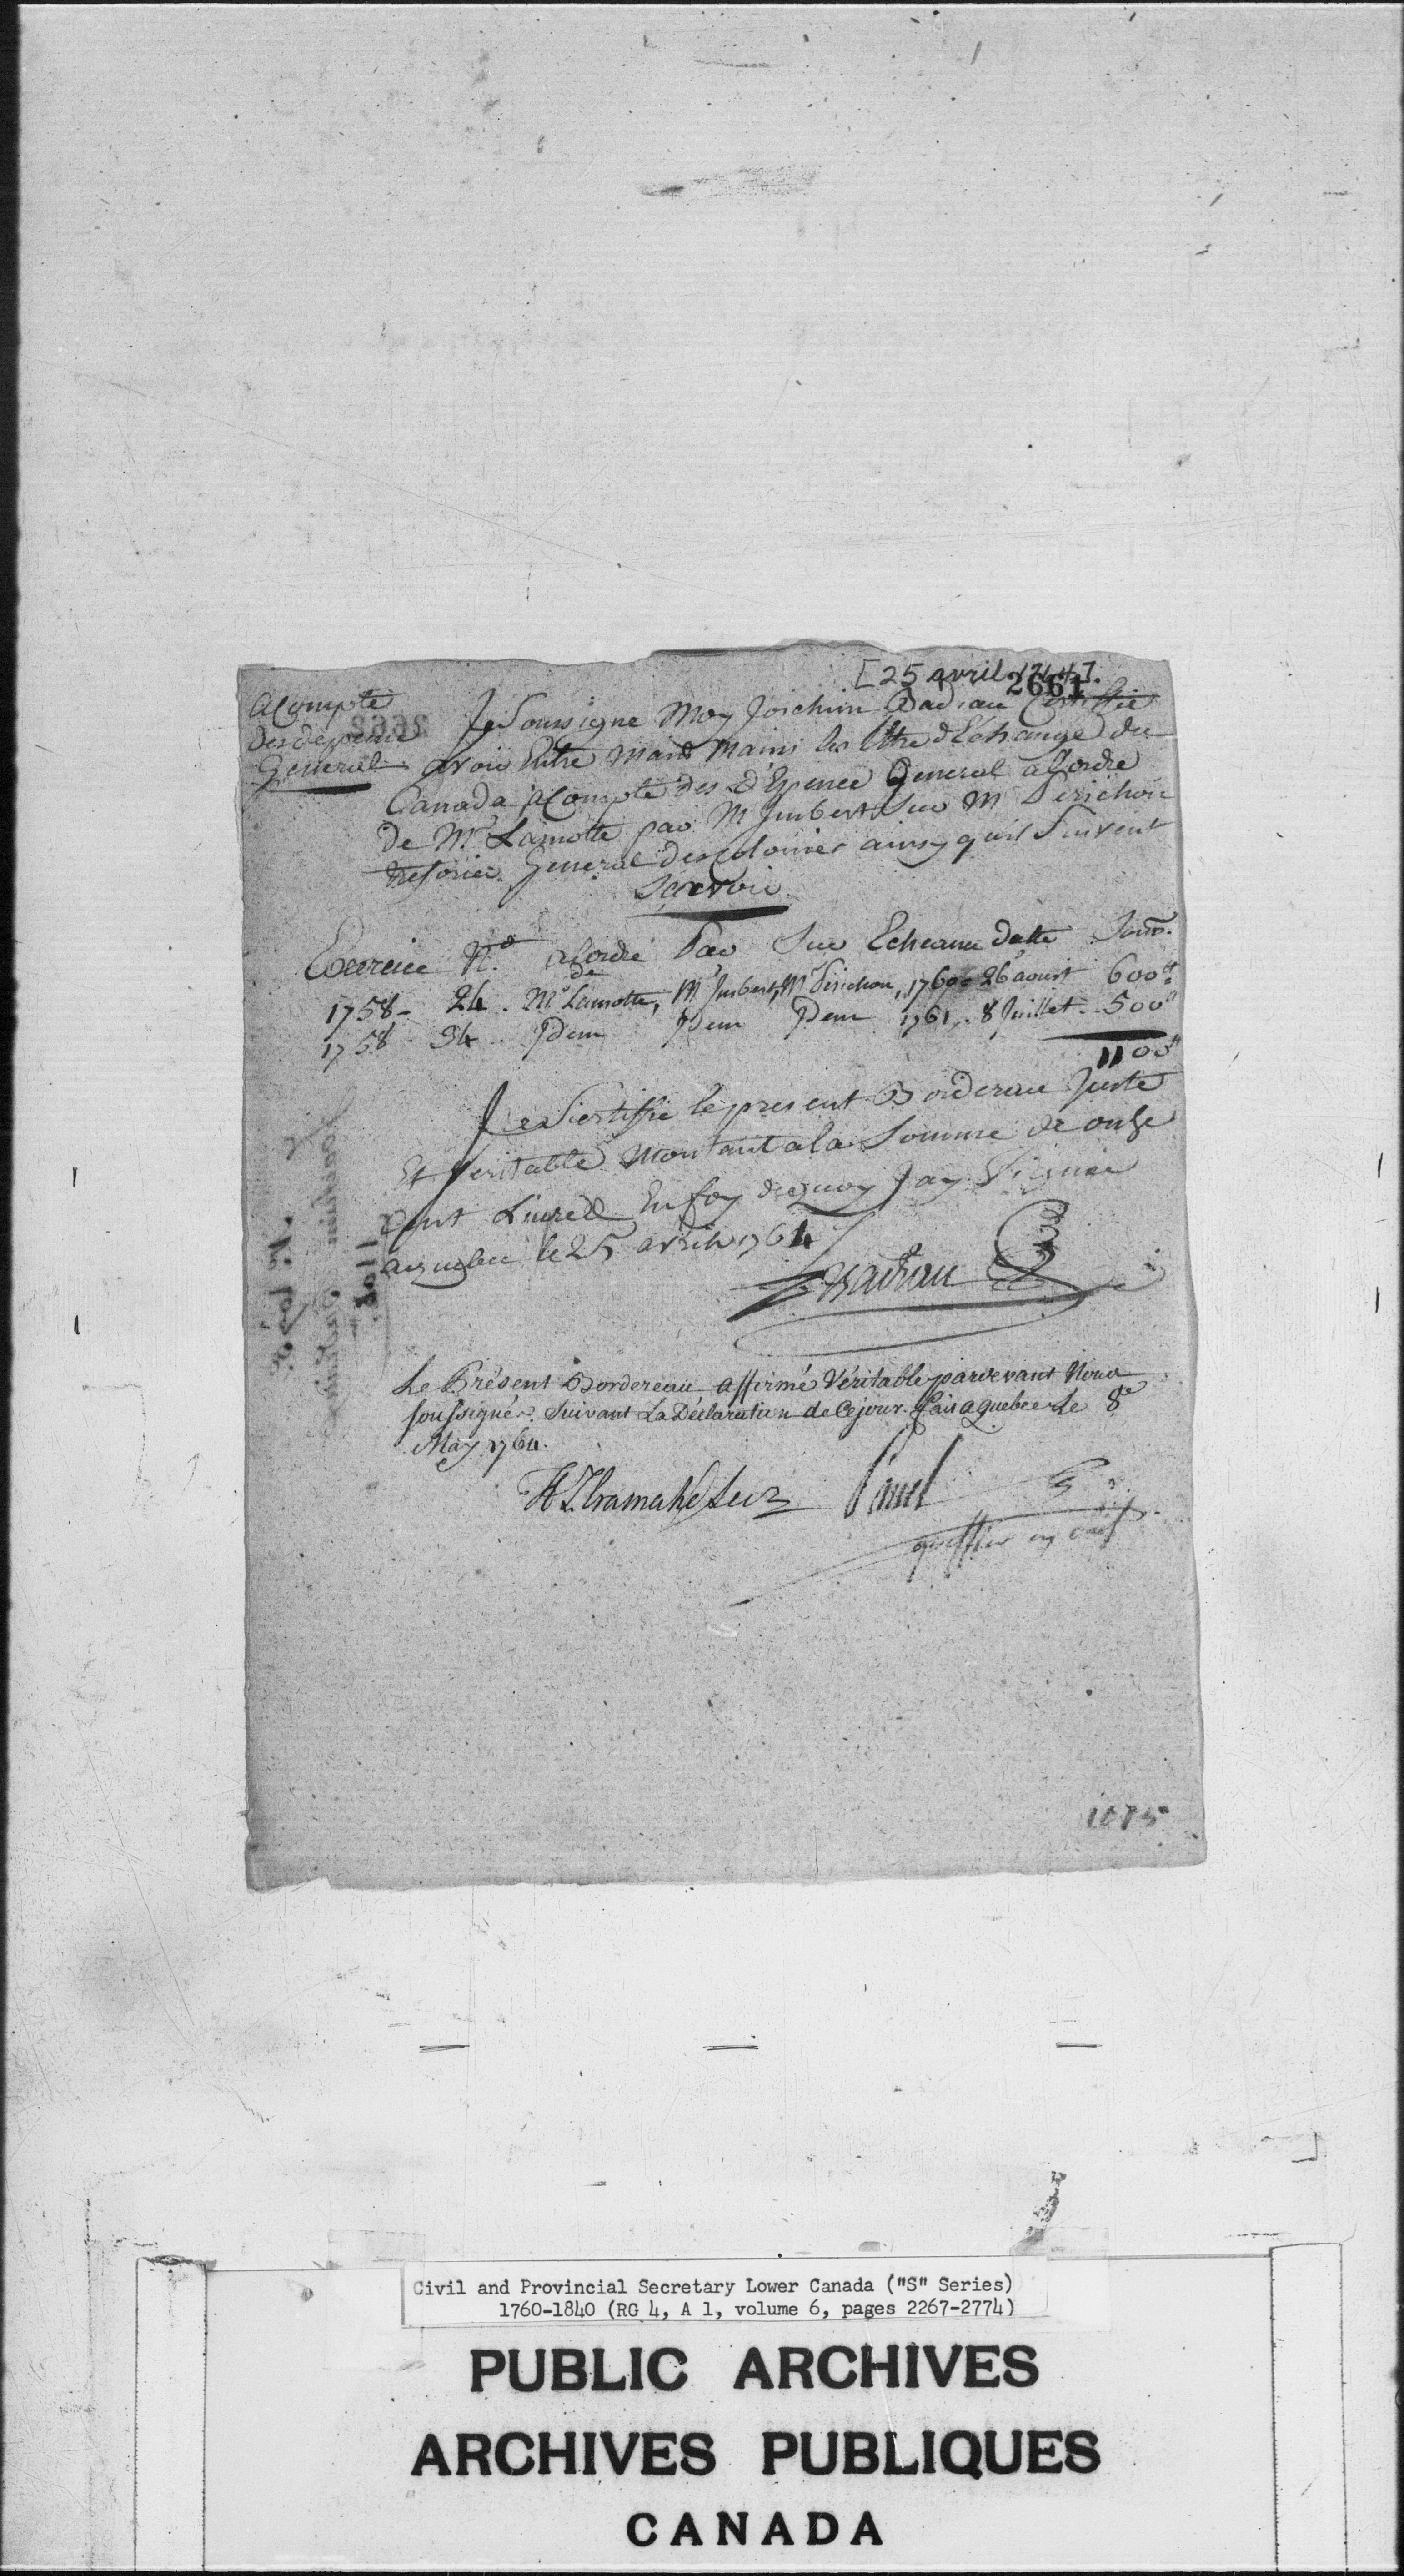 [25 avril 1764].
2661
acompte
des depence
General
Je Soussigne Moy Joichim Dadiau Certiffie
avoir Entre Mains les lttre d'Echange du
Canada acompte des d'Epence General alordre
de Mr Lamotte par M Imbert Sur M Perichon
tresorier General des Colonies ainsy quil Suivent
Scavoir
Exercice No alordre Par Sur Echeance datte Som.
de
1758 - 24 . Mr Lamotte, Mr Imbert, Mr Perichon, 1760 - 26 aoust 600tt
1758 . 34 . Idem Idem Idem 1761 . 8 Juillet . 500tt
1100tt
Je Siertiffie le present Bordereau Juste
Et Veritable Montant ala Somme de onze
Cent Livre En foy dequoy Jay Signer
aquebec le 25 avril 1764
Dadiau
Le Présent Bordereau affirmé Véritable pardevant Nous
soussignés, Suivant La Déclaration de Cejour. fait a Quebec Le 8e
May 1764.
HTCramahé
Panet
greffier
1075
Civil and Provincial Secretary Lower Canada ("S" Series)
1760-1840 (RG 4, A 1, volume 6, pages 2267-2774)
PUBLIC ARCHIVES
ARCHIVES PUBLIQUES
CANADA